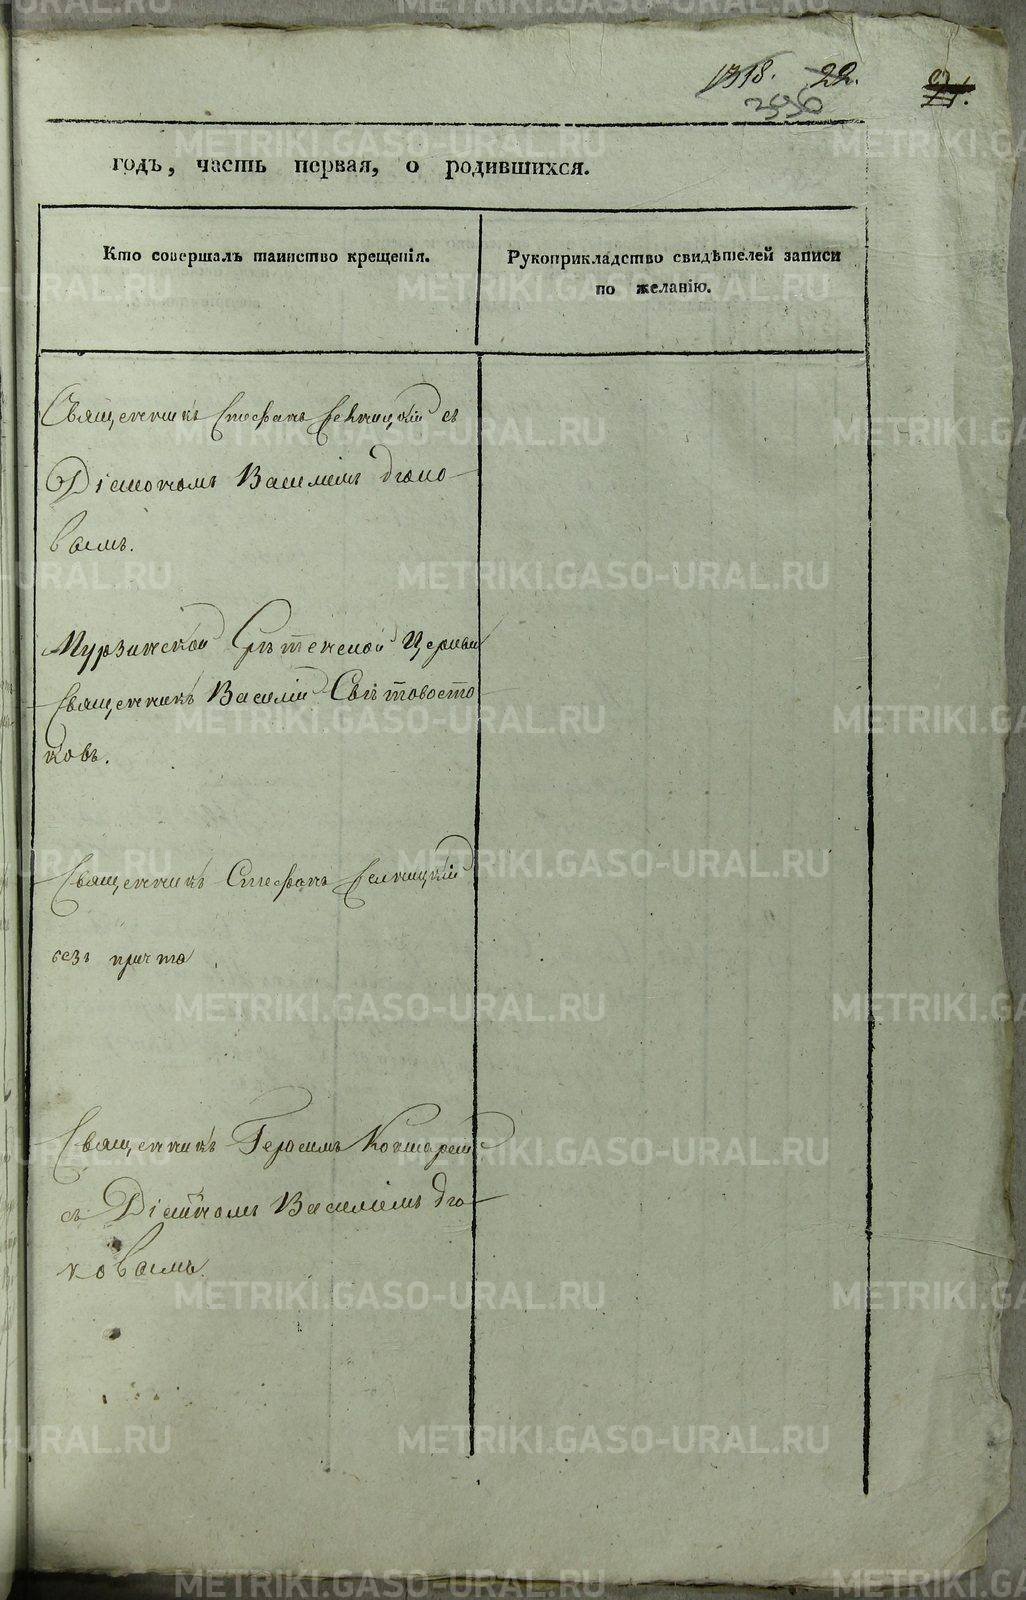 1318. 22.
236
годъ, часть первая, о родившихся.
Кто совершалъ таинство крещенія.
Рукоприкладство свидѣтелей записи
по желанію.
Священникъ Стефанъ съ
Діакономъ Василіемъ Дьяко-
вымъ.
Мурзинской Срѣтенской Церкви
Священникъ Василій Свѣтовосто
ковъ.
Священникъ Стефанъ
безъ причта
Священникъ Герасимъ
съ Діакономъ Василіемъ Дья
ковымъ
METRIKI.GASO-URAL.RU